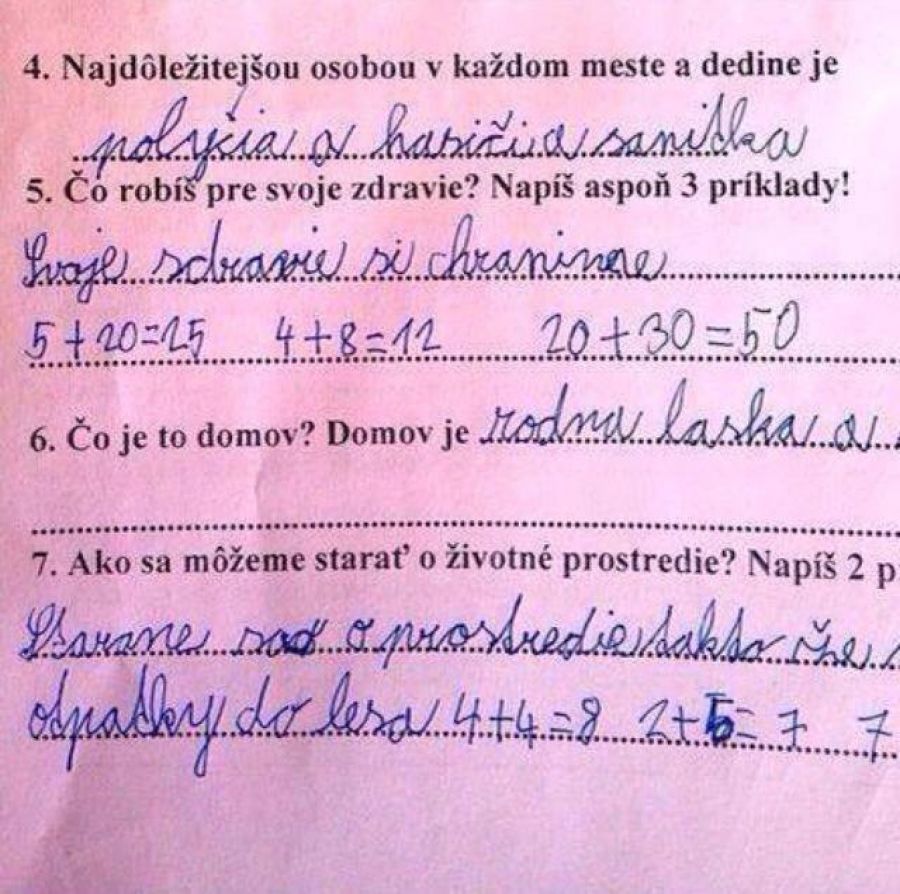 4. Najdôležitejšou osobou v každom meste a dedine je
polycia a hasiči a sanitka
5. Čo robíš pre svoje zdravie? Napíš aspoň 3 príklady!
Svoje sdravie si chranime
5+20=25 4+8=12 20+30=50
6. Čo je to domov? Domov je rodna laska a
7. Ako sa môžeme starať o životné prostredie? Napíš 2 p
Starame sa o prostredie takto že
odpatky do lesa 4+4=8 2+5=7 7